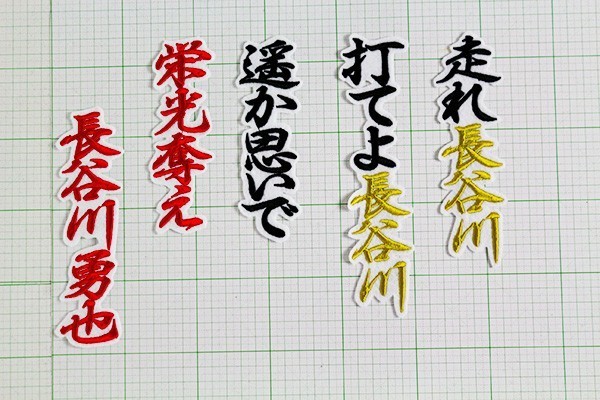 走れ長谷川
打てよ長谷川
遥か思いで
栄光奪え
長谷川勇也